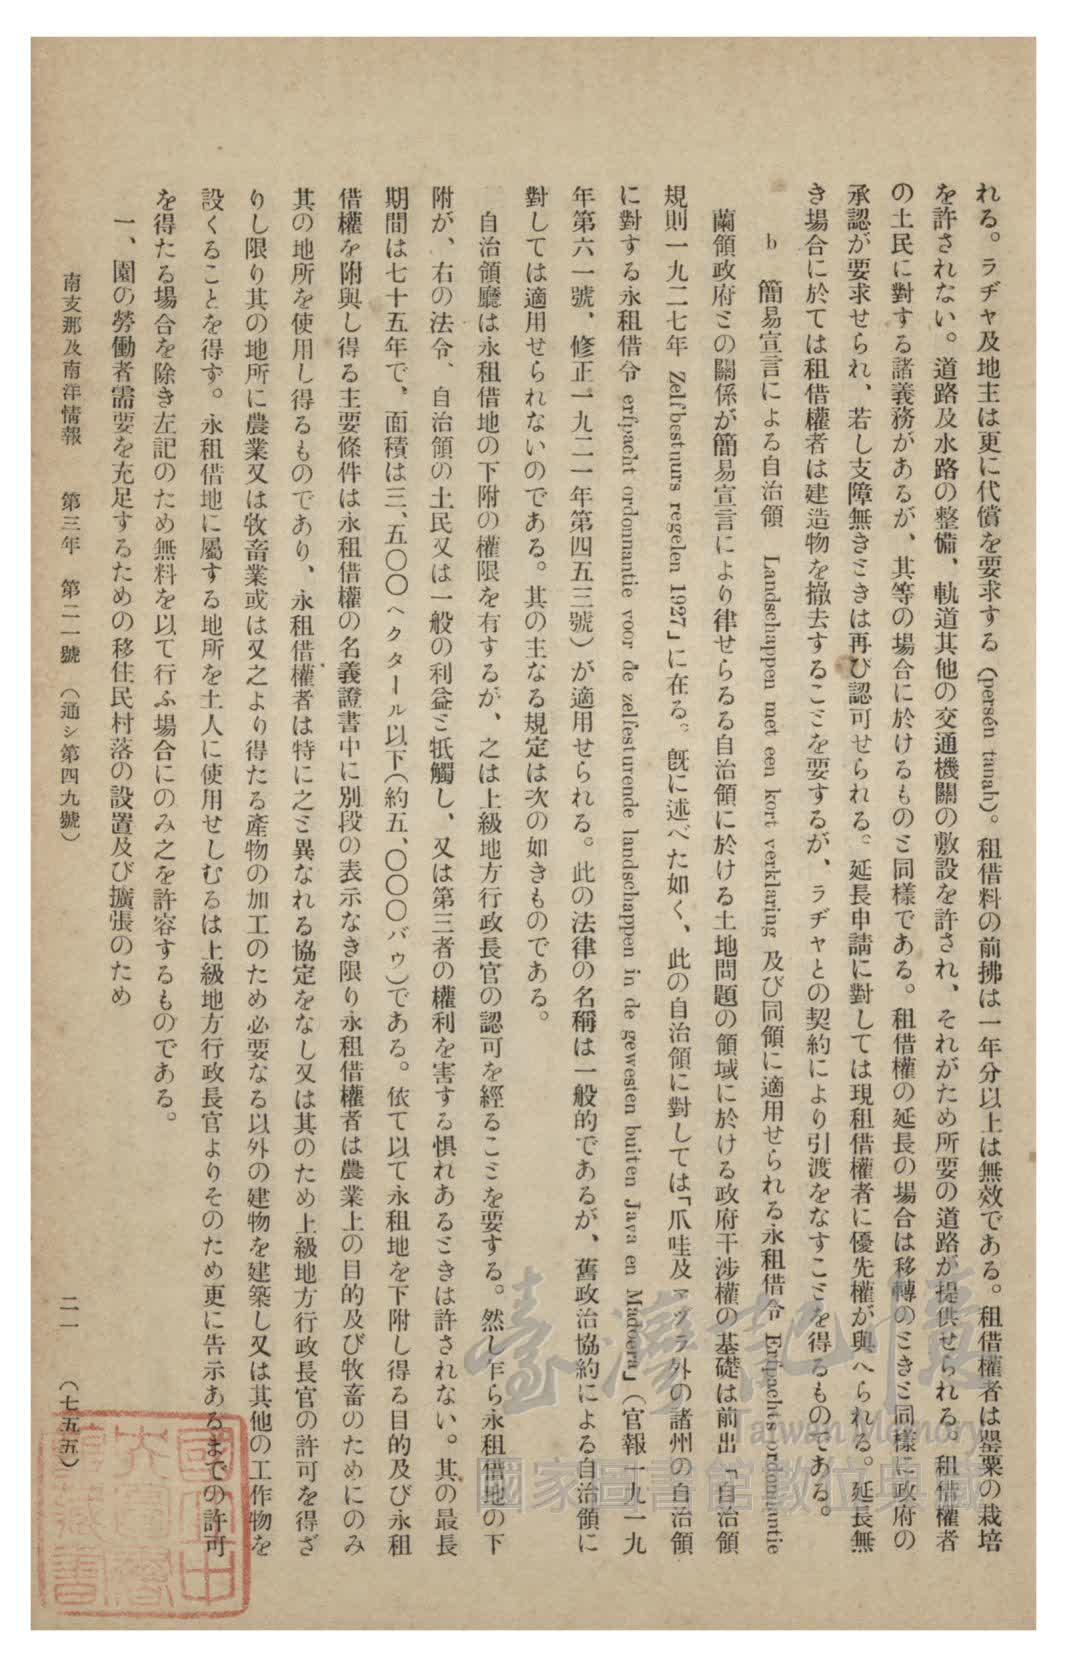 れる。ラヂヤ及地主は更に代償を要求する（persén tanah）。租借料の前拂は一年分以上は無效である。租借權者は罌粟の栽培
を許されない。道路及水路の整備、軌道其他の交通機關の敷設を許され、それがため所要の道路が提供せられる。租借權者
の土民に對する諸義務があるが、其等の場合に於けるものと同樣である。租借權の延長の場合は移轉のときと同樣に政府の
承認が要求せられ、若し支障無きときは再び認可せられる。延長申請に對しては現租借權者に優先權が與へられる。延長無
き場合に於ては租借權者は建造物を撤去することを要するが、ラヂヤとの契約により引渡をなすことを得るものである。
b　簡易宣言による自治領　Landschappen met een kort verklaring 及び同領に適用せられる永租借令 Erfpachts ordonnantie
蘭領政府との關係が簡易宣言により律せらるる自治領に於ける土地問題の領域に於ける政府干渉權の基礎は前出「自治領
規則一九二七年 Zelfbestuurs regelen 1927」に在る。既に述べた如く、此の自治領に對しては「爪哇及マヅラ外の諸州の自治領
に對する永租借令 erfpacht ordonnantie voor de zelfesturende landschappen in de gewesten buiten Java en Madoera」（官報一九一九
年第六一號、修正一九二一年第四五三號）が適用せられる。此の法律の名稱は一般的であるが、舊政治協約による自治領に
對しては適用せられないのである。其の主なる規定は次の如きものである。
自治領廳は永租借地の下附の權限を有するが、之は上級地方行政長官の認可を經ることを要する。然し乍ら永租借地の下
附が、右の法令、自治領の土民又は一般の利益と牴觸し、又は第三者の權利を害する惧れあるときは許されない。其の最長
期間は七十五年で、面積は三、五〇〇ヘクタール以下（約五、〇〇〇バウ）である。依て以て永租地を下附し得る目的及び永租
借權を附與し得る主要條件は永租借權の名義證書中に別段の表示なき限り永租借權者は農業上の目的及び牧畜のためにのみ
其の地所を使用し得るものであり、永租借權者は特に之と異なれる協定をなし又は其のため上級地方行政長官の許可を得ざ
りし限り其の地所に農業又は牧畜業或は又之より得たる產物の加工のため必要なる以外の建物を建築し又は其他の工作物を
設くることを得ず。永租借地に屬する地所を土人に使用せしむるは上級地方行政長官よりそのため更に告示あるまでの許可
を得たる場合を除き左記のため無料を以て行ふ場合にのみ之を許容するものである。
一、園の勞働者需要を充足するための移住民村落の設置及び擴張のため
南支那及南洋情報　第三年　第二一號　（通シ第四九號）　二一　（七五五）
臺灣記憶
Taiwan Memory
國家圖書館數位典藏